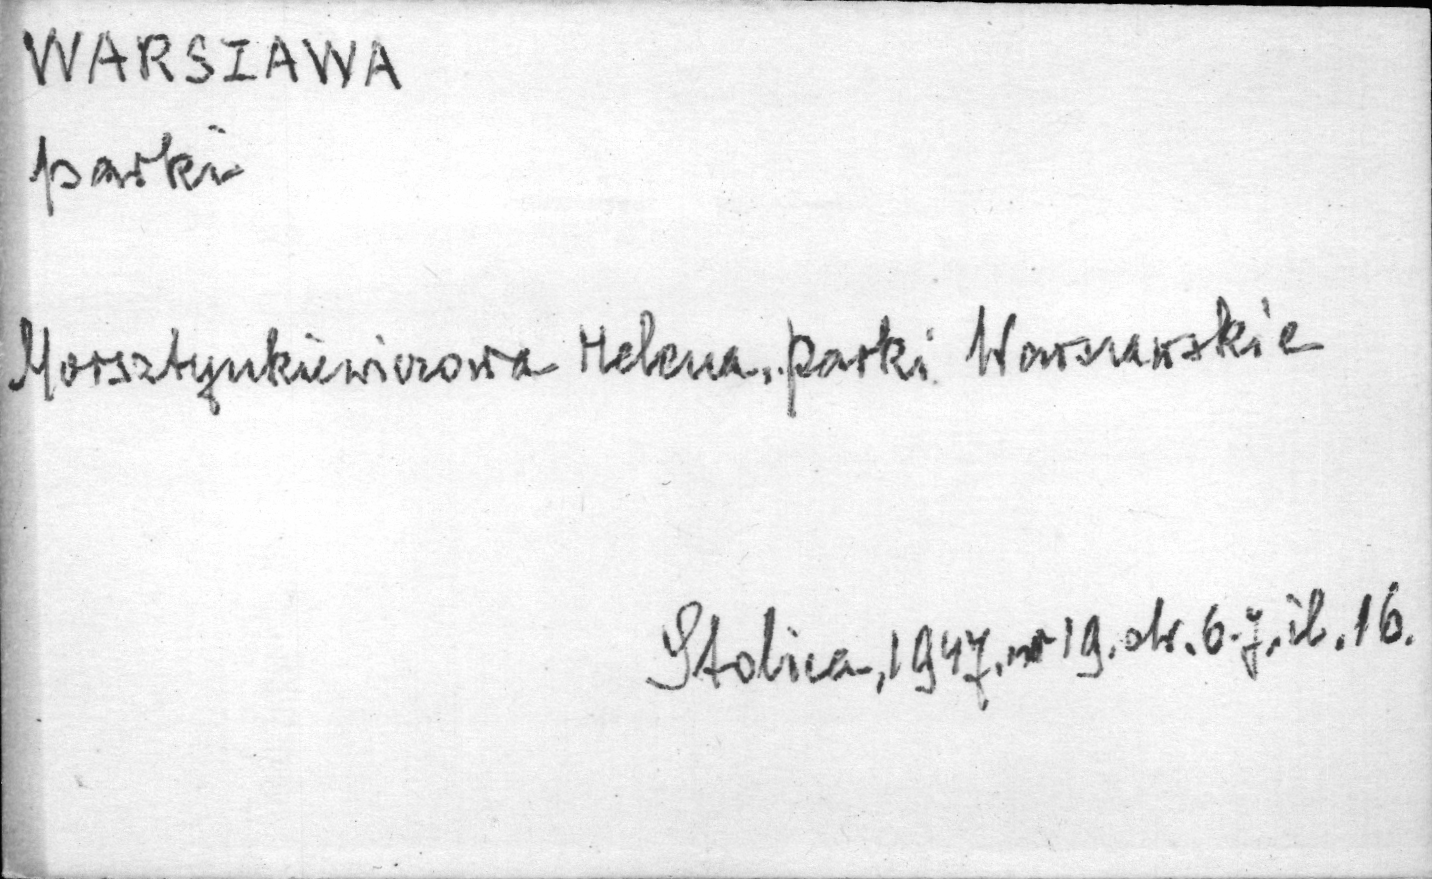 WARSZAWA
parki
Morsztynkiewiczowa Helena. Parki Warszawskie
Stolica, 1947. nr 19. str. 6-7. il. 16.